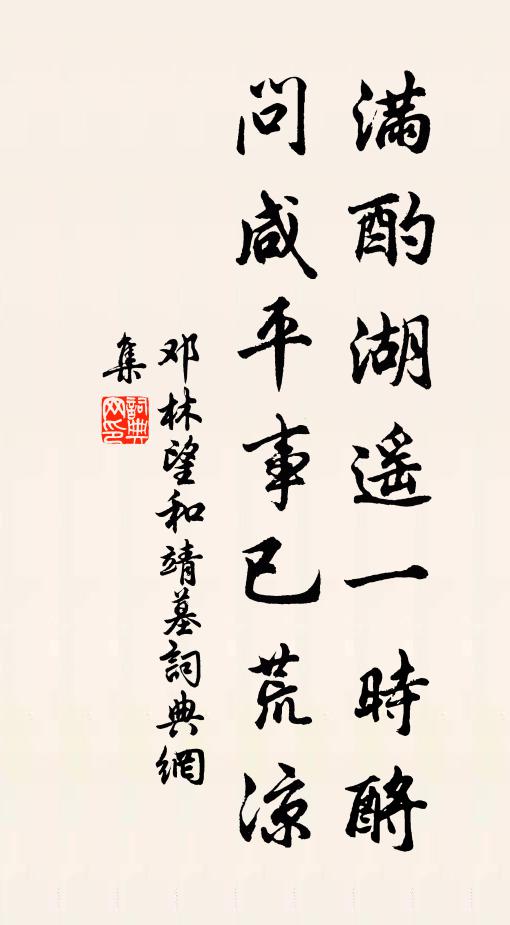 满酌湖遥一時酹
问咸平事已荒凉
邓林望和靖墓詞典網
集
詞典网印